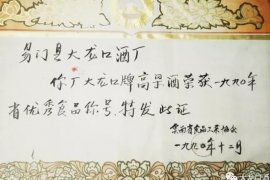 易门县大龙口酒厂
你厂大龙口牌高粱酒荣获一九九〇年
省优秀食品称号,特发此证
云南省食品工业协会
一九九〇年十二月